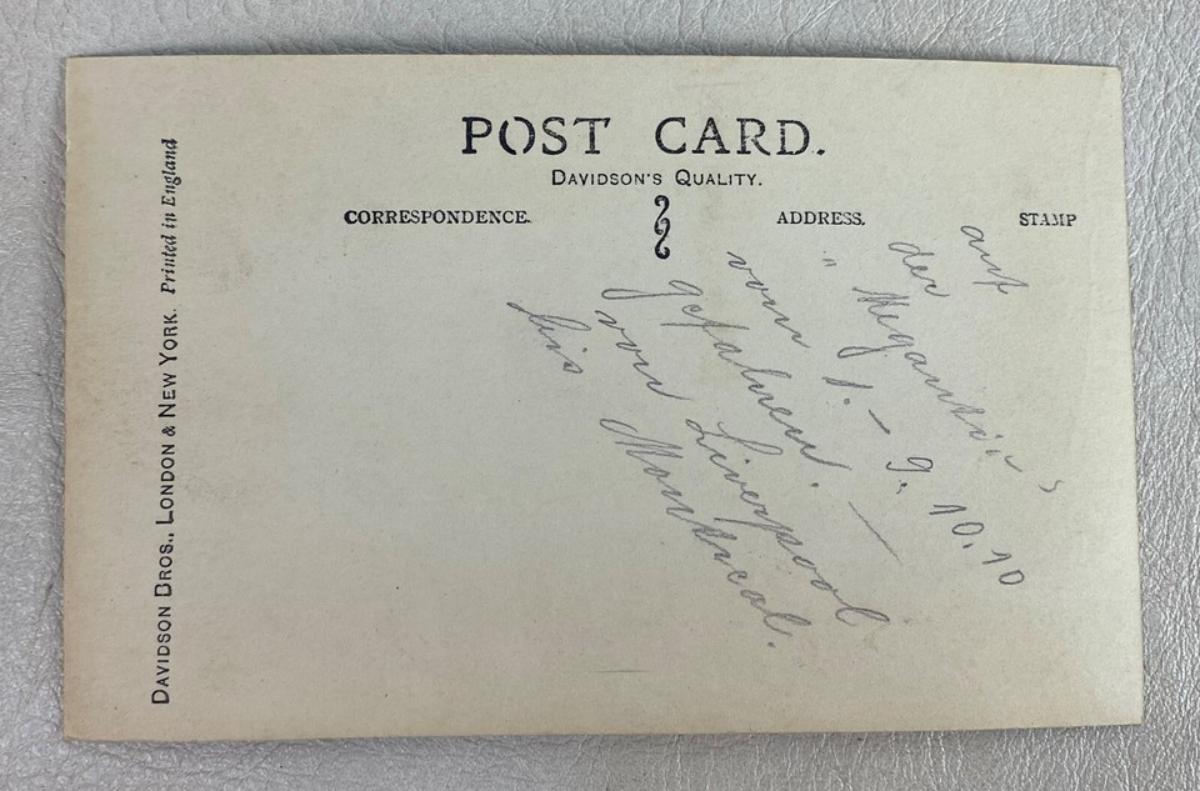 POST CARD.
DAVIDSON'S QUALITY.
CORRESPONDENCE.
ADDRESS.
STAMP
DAVIDSON BROS., LONDON & NEW YORK. Printed in England
auf
der
"Megantic"
vom 1. – 9. 10. 10
gefahren. —
von Liverpool
bis Montreal.